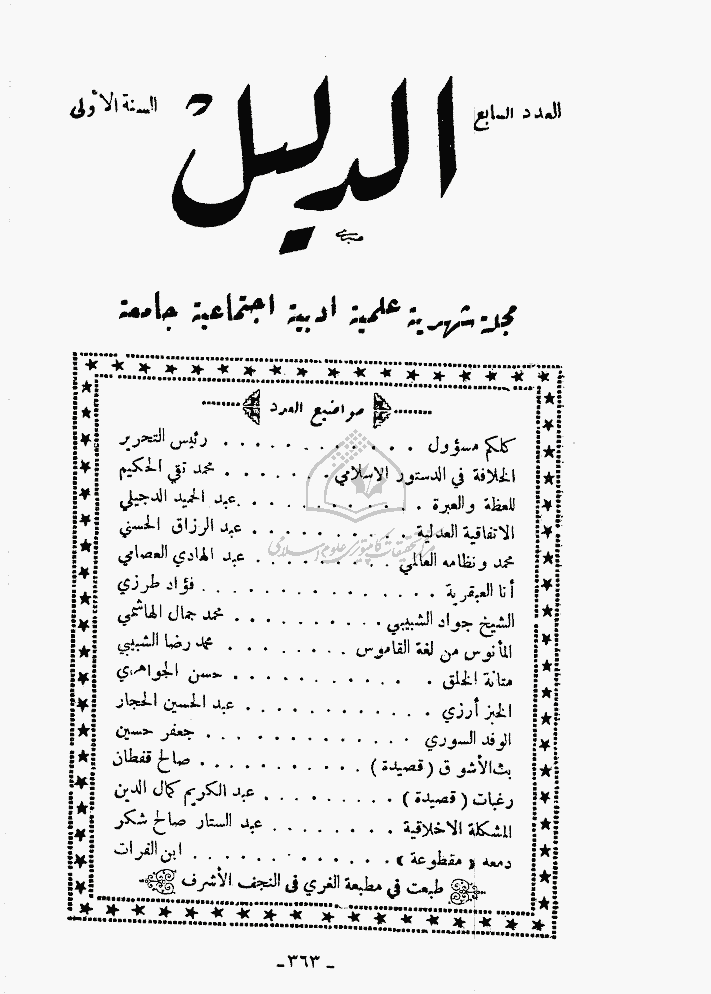 العدد السابع
الدليل
السنة الأولى
مجلة شهرية علمية ادبية اجتماعية جامعة
مواضيع العدد
كلكم مسؤول . . . . . . . . . . . . رئيس التحرير
الخلافة في الدستور الاسلامي . . . . . . محمد تقي الحكيم
للعظة والعبرة . . . . . . . . . . . عبد الحميد الدجيلي
الاتفاقية العدلية . . . . . . . . . . عبد الرزاق الحسني
محمد ونظامه العالمي . . . . . . . . عبد الهادي العصامي
أنا العبقرية . . . . . . . . . . . . . فؤاد طرزي
الشيخ جواد الشبيبي . . . . . . . . . محمد جمال الهاشمي
المأنوس من لغة القاموس . . . . . . . . محمد رضا الشبيبي
متانة الخلق . . . . . . . . . . . حسن الجواهري
الخبز أرزي . . . . . . . . . . . عبد الحسين الحجار
الوفد السوري . . . . . . . . . . . . جعفر حسين
بث الأشوق ( قصيدة ) . . . . . . . . . صالح قفطان
رغبات ( قصيدة ) . . . . . . . . عبد الكريم كمال الدين
المشكلة الاخلاقية . . . . . . . . عبد الستار صالح شكر
دمعه « مقطوعة » . . . . . . . . . . . ابن الفرات
طبعت في مطبعة الغري في النجف الأشرف
مرکز تحقیقات کامپیوتری علوم اسلامی
ـ ٣٦٣ ـ